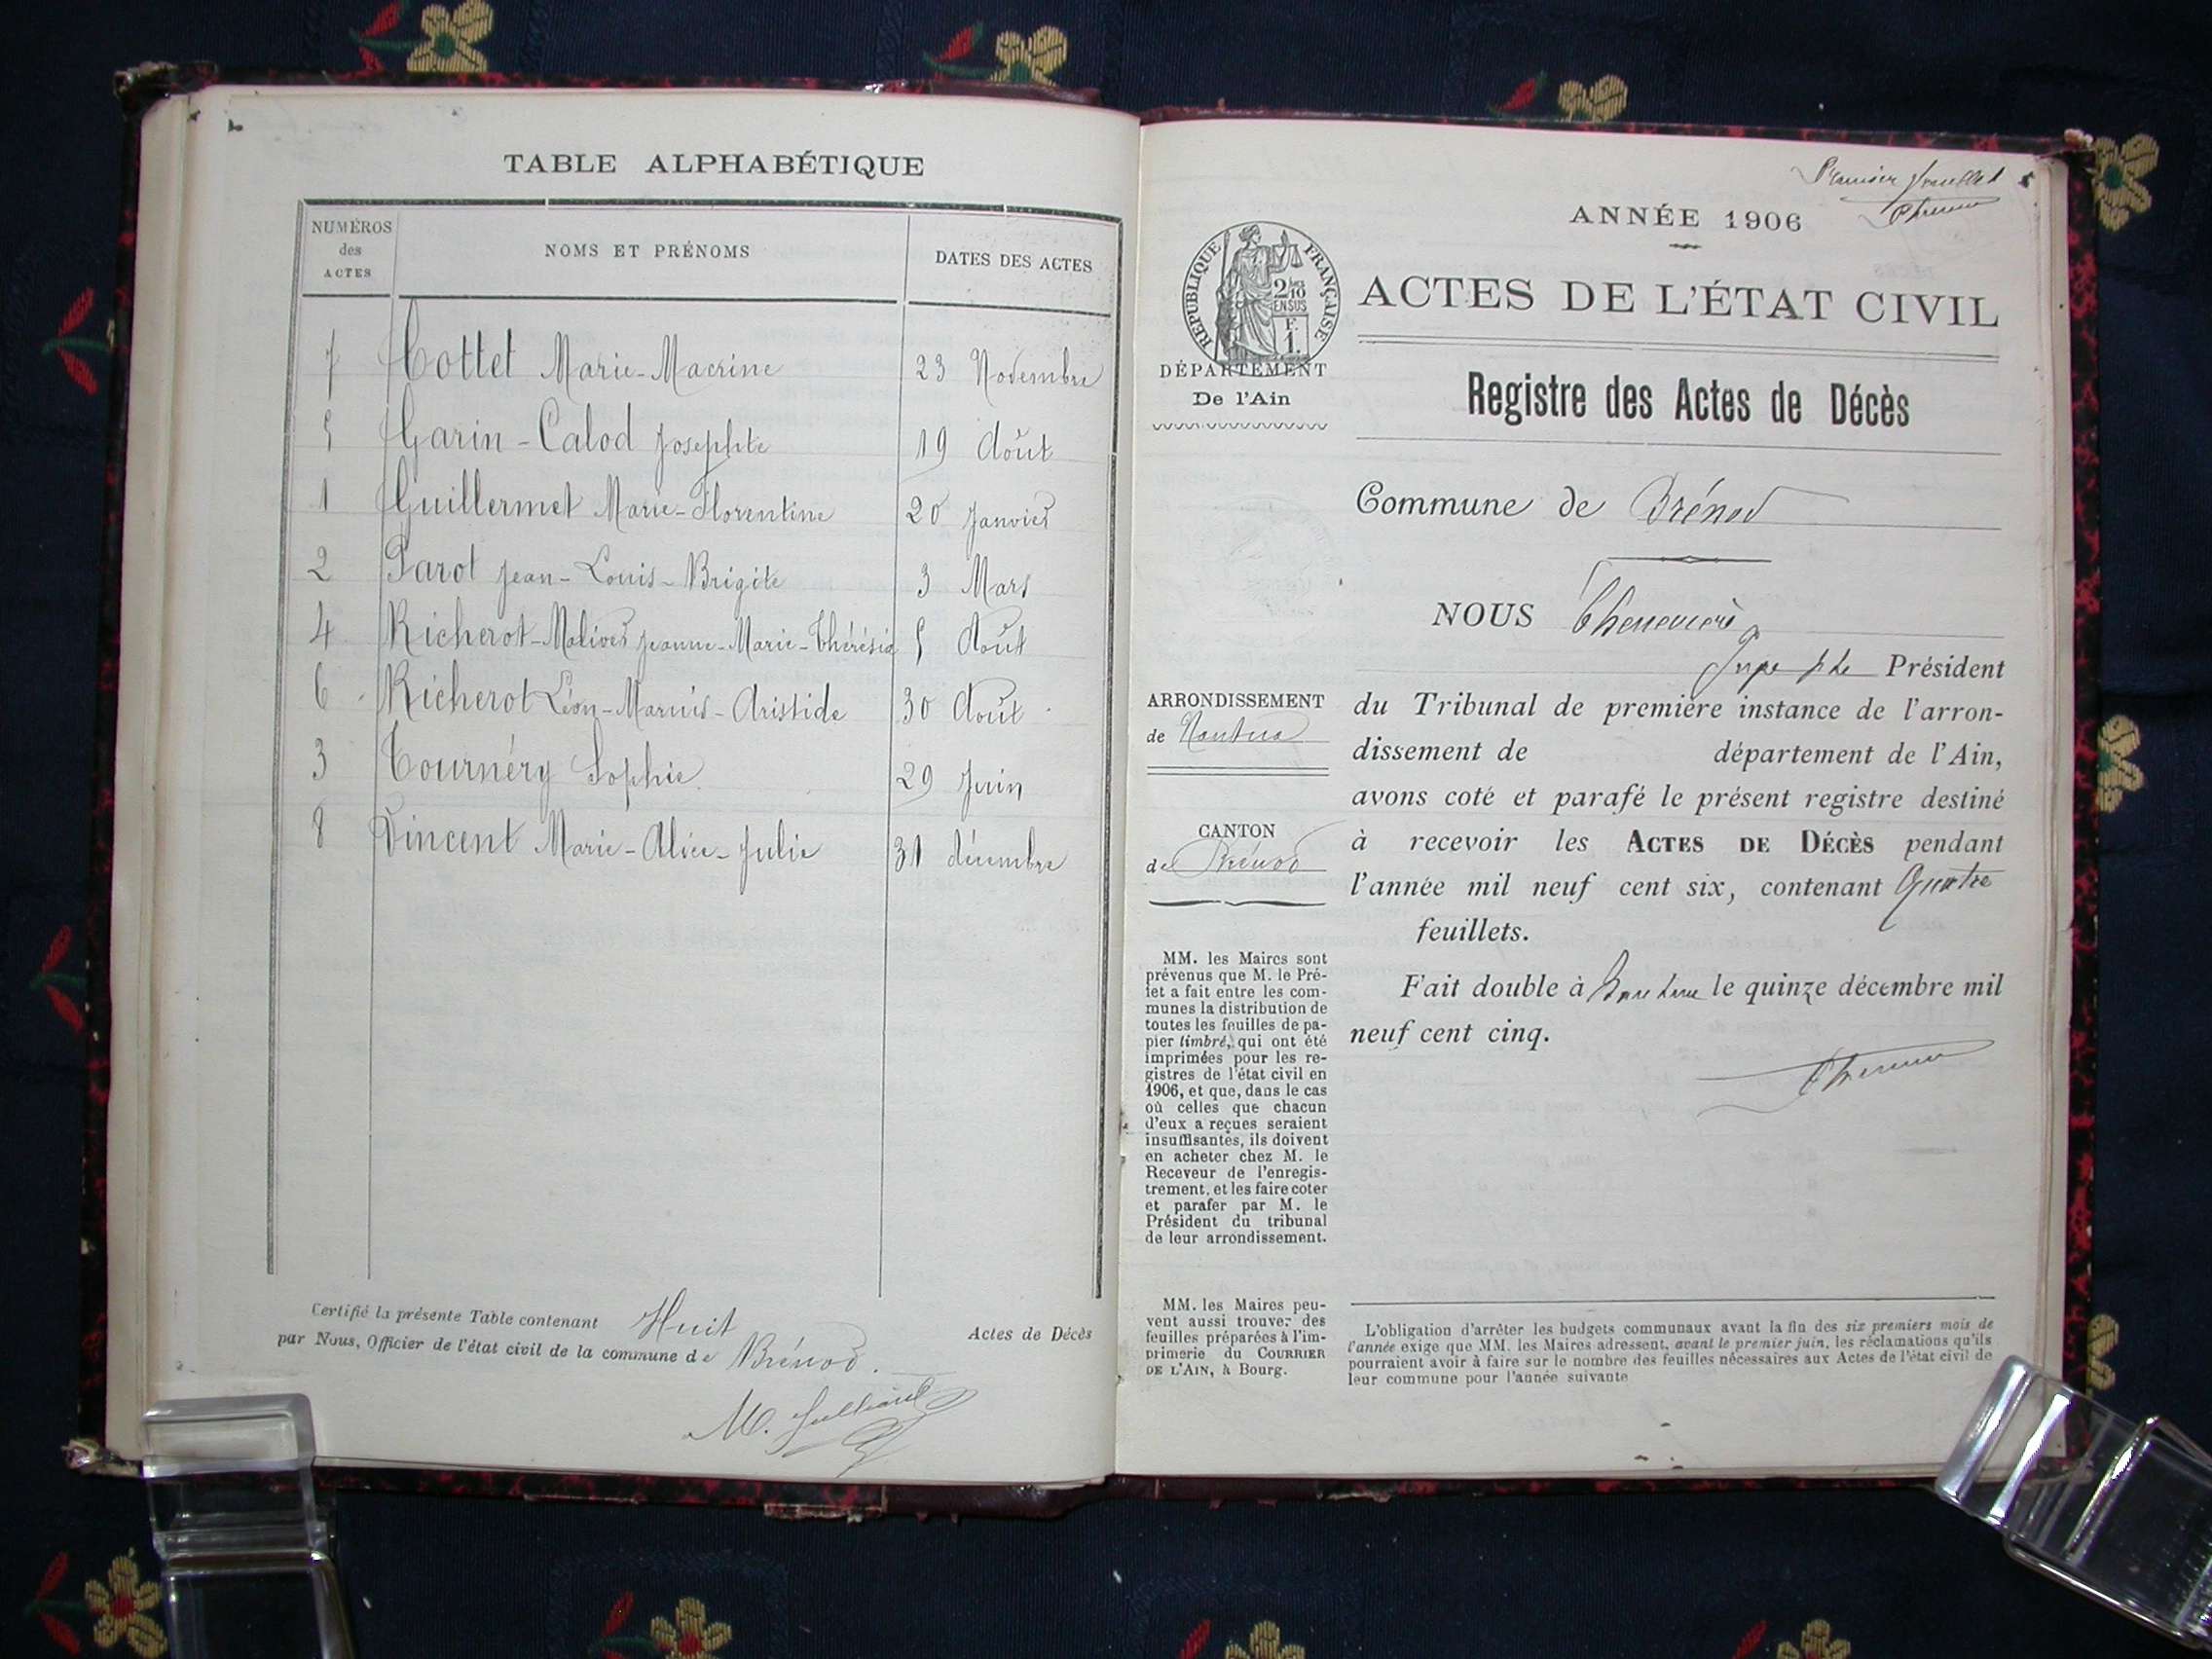 TABLE ALPHABÉTIQUE
NUMÉROS des ACTES NOMS ET PRÉNOMS DATES DES ACTES
7 Cottet Marie-Macrine 23 Novembre
5 Garin-Calod Josephte 19 Août
1 Guillermet Marie-Florentine 20 Janvier
2 Parot Jean-Louis-Brigite 3 Mars
4 Richerot-Malivert Jeanne-Marie-Thérésia 5 Août
6 Richerot Léon-Marius-Aristide 30 Août
3 Tournéry Sophie 29 Juin
8 Vincent Marie-Alice-Julie 31 décembre
Certifié la présente Table contenant Huit Actes de Décès
par Nous, Officier de l'état civil de la commune de Brénod.
M. Julliard
Premier feuillet
ANNÉE 1906
RÉPUBLIQUE FRANÇAISE
2/10
EN SUS
F.
1.
ACTES DE L'ÉTAT CIVIL
DÉPARTEMENT
De l'Ain
Registre des Actes de Décès
Commune de Brénod
NOUS
Président
du Tribunal de première instance de l'arron-
dissement de département de l'Ain,
avons coté et parafé le présent registre destiné
à recevoir les ACTES DE DÉCÈS pendant
l'année mil neuf cent six, contenant Quatre
feuillets.
Fait double à Nantua le quinze décembre mil
neuf cent cinq.
ARRONDISSEMENT
de Nantua
CANTON
de Brénod
MM. les Maires sont
prévenus que M. le Pré-
fet a fait entre les com-
munes la distribution de
toutes les feuilles de pa-
pier timbré, qui ont été
imprimées pour les re-
gistres de l'état civil en
1906, et que, dans le cas
où celles que chacun
d'eux a reçues seraient
insuffisantes, ils doivent
en acheter chez M. le
Receveur de l'enregis-
trement, et les faire coter
et parafer par M. le
Président du tribunal
de leur arrondissement.
MM. les Maires peu-
vent aussi trouver des
feuilles préparées à l'im-
primerie du COURRIER
DE L'AIN, à Bourg.
L'obligation d'arrêter les budgets communaux avant la fin des six premiers mois de
l'année exige que MM. les Maires adressent, avant le premier juin, les réclamations qu'ils
pourraient avoir à faire sur le nombre des feuilles nécessaires aux Actes de l'état civil de
leur commune pour l'année suivante